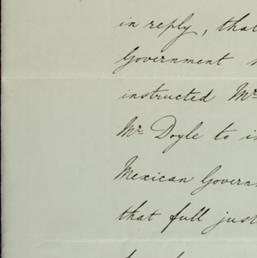 in reply, that
Government
instructed Mr
Mr Doyle to
Mexican Govern
that full just